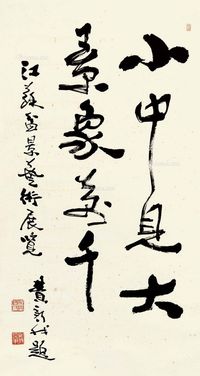 小中見大
景象萬千
江蘇盆景藝術展覽
費新我題